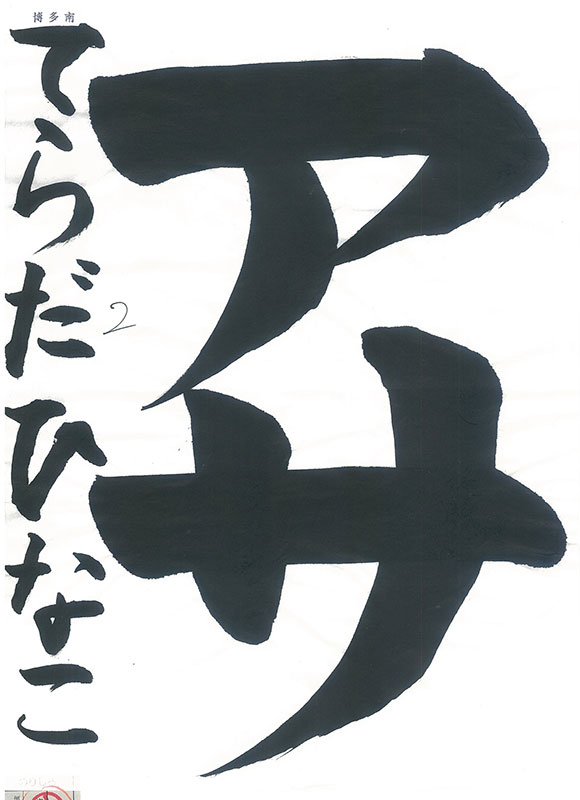 アサ
博多南
てらだひなこ
2